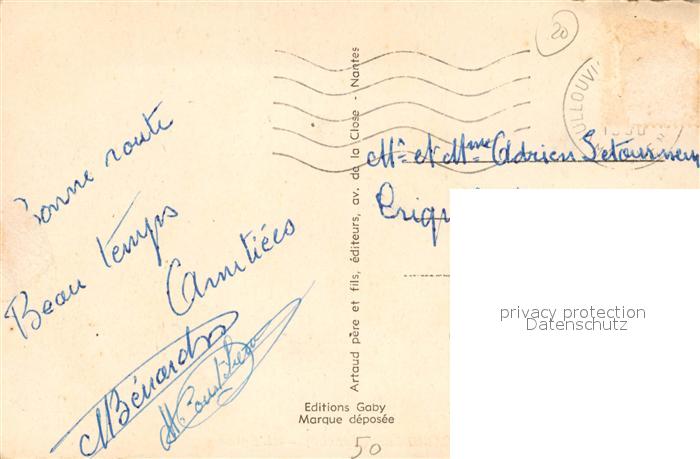 Bonne route
Beau temps
Amitiées
MBénard
Artaud père et fils, éditeurs, av. de la Close - Nantes
Editions Gaby
Marque déposée
50
20
Mr et Mme Adrien Letourneur
privacy protection
Datenschutz